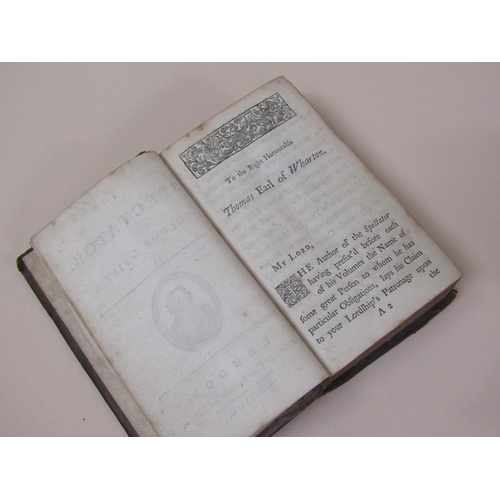 To the Right Honourable
Thomas Earl of Wharton.
MY LORD,
THE Author of the Spectator
having prefix'd before each
of his Volumes the Name of
some great Person to whom he has
particular Obligations, lays his Claim
to your Lordship's Patronage upon
the
A 2